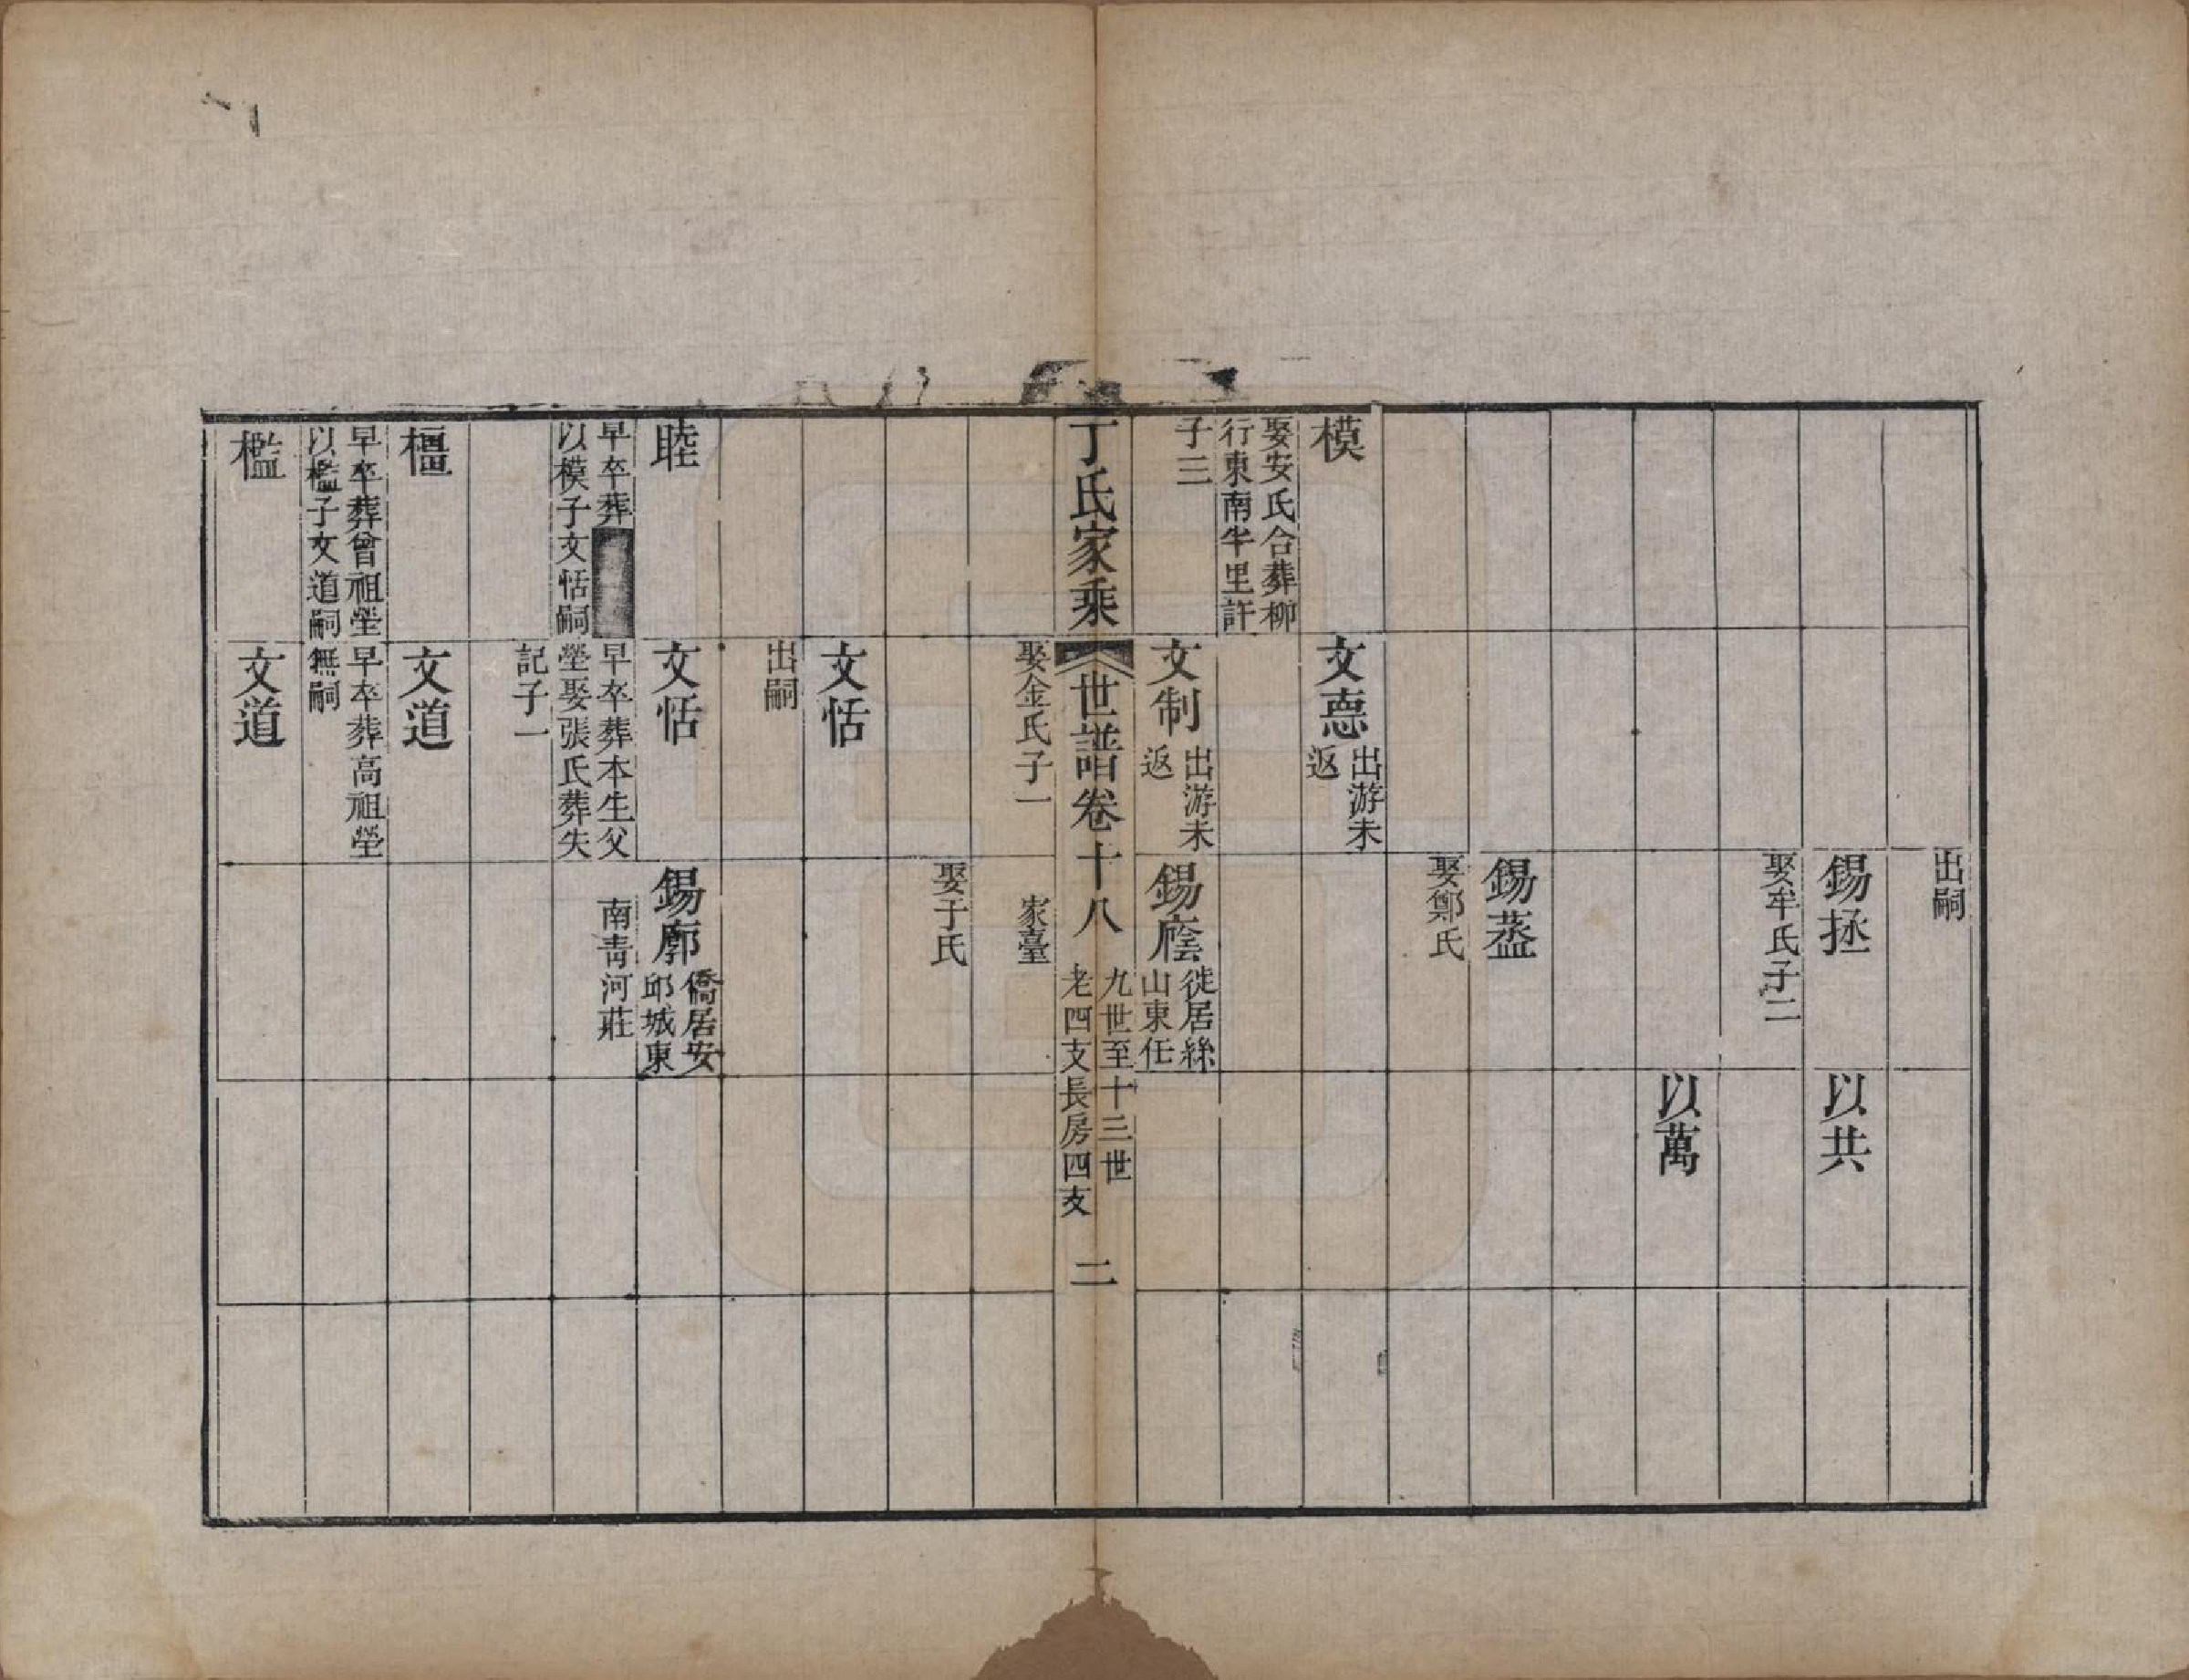 出嗣
錫拯
以共
娶牟氏子二
以萬
錫蒸
娶鄭氏
模
文悳
出游未
返
娶安氏合葬柳
行東南半里許
子三
文制
出游未
返
錫廕
徙居絲
山東任
丁氏家乘
世譜卷十八
九世至十三世
老四支長房四支
二
家臺
娶金氏子一
娶于氏
文恬
出嗣
睦
文恬
錫廓
僑居安
邱城東
南靑河莊
早卒葬
以模子文恬嗣
早卒葬本生父
塋娶張氏葬失
記子一
橿
文道
早卒葬曾祖塋
以檻子文道嗣
早卒葬高祖塋
無嗣
檻
文道